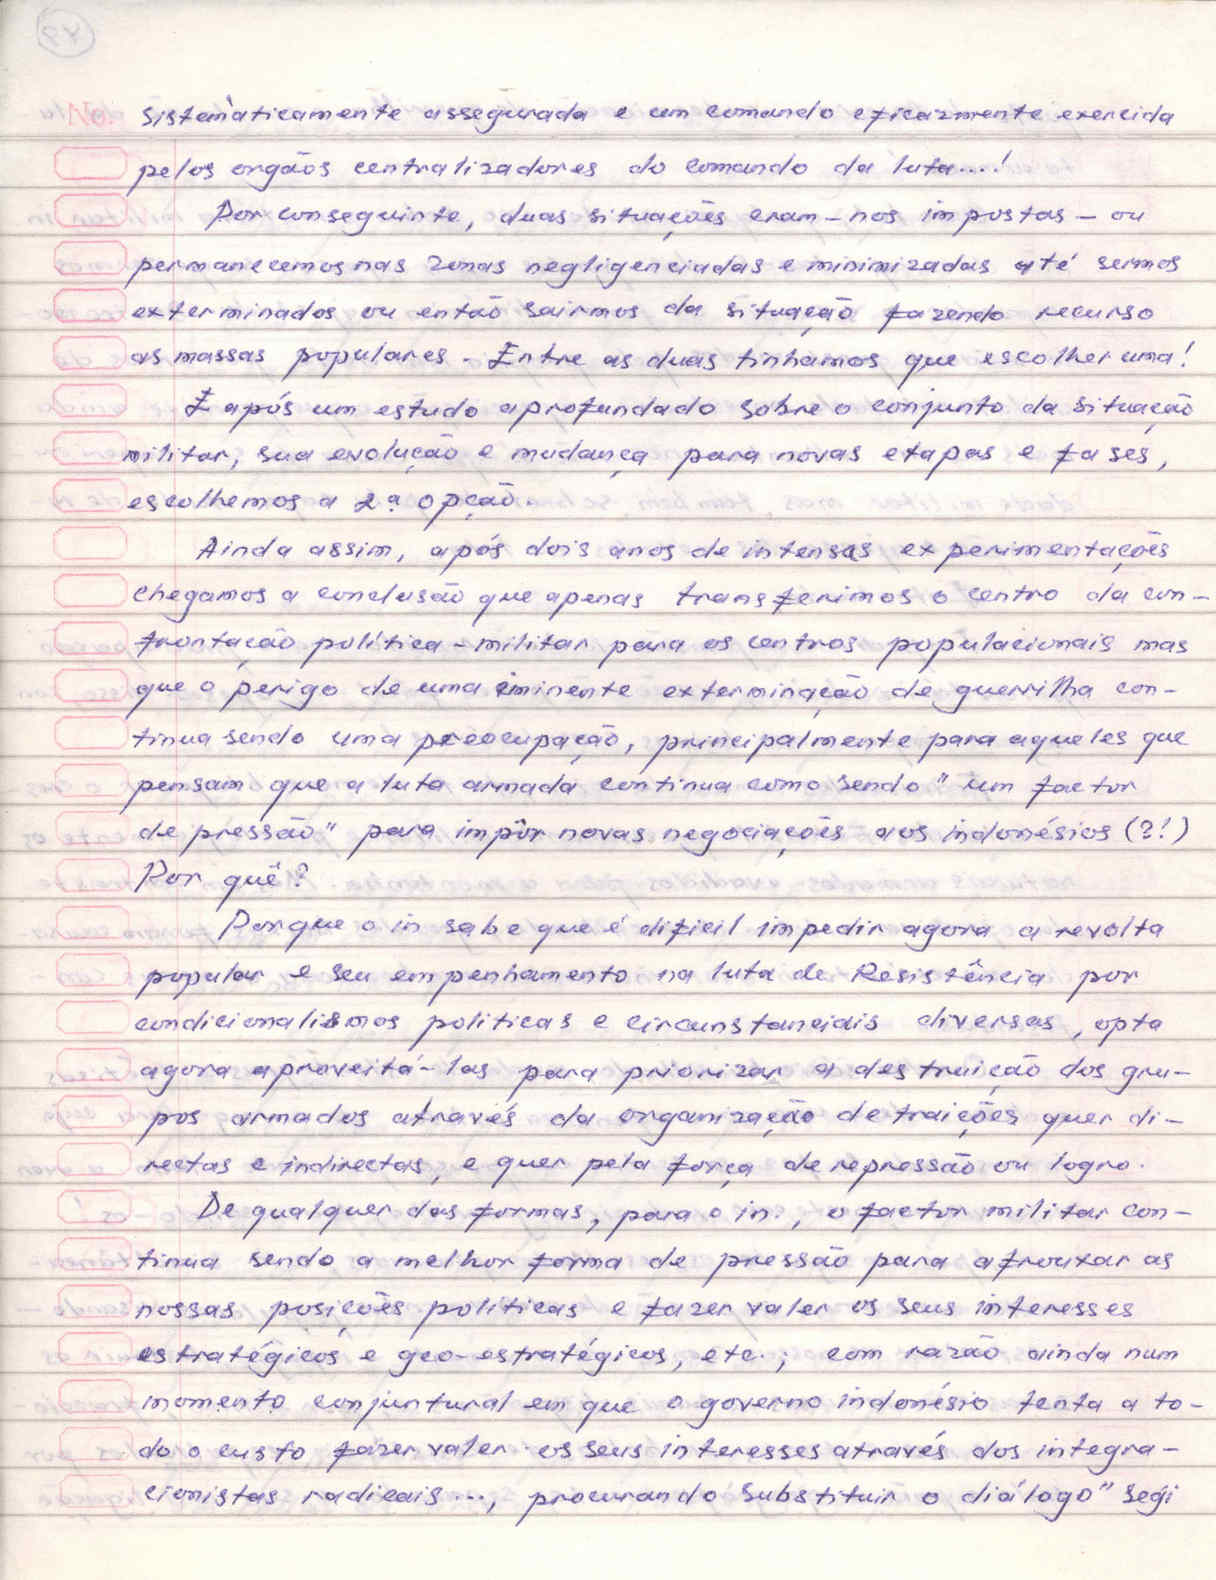 sistemàticamente assegurada e um comando eficazmente exercida
pelos orgãos centralizadores do comando da luta....!
Por conseguinte, duas situações eram-nos impostas - ou
permanecemos nas zonas negligenciadas e minimizadas até sermos
exterminados ou então sairmos da situação fazendo recurso
as massas populares. Entre as duas tinhamos que escolher uma!
E após um estudo aprofundado sobre o conjunto da situação
militar, sua evolução e mudança para novas etapas e fases,
escolhemos a 2ª opção.
Ainda assim, após dois anos de intensas experimentações
chegamos a conclusão que apenas transferimos o centro da con-
frontação política-militar para os centros populacionais mas
que o perigo de uma iminente exterminação de guerrilha con-
tinua sendo uma preocupação, principalmente para aqueles que
pensam que a luta armada continua como sendo "um factor
de pressão" para impôr novas negociações aos indonésios (?!)
Por quê?
Porque o in sabe que é dificil impedir agora a revolta
popular e seu empenhamento na luta de Resistência por
condicionalismos politicas e circunstanciais diversas, opta
agora aproveitá-las para priorizar a destruição dos gru-
pos armados através da organização de traições quer di-
rectas e indirectas, e quer pela força de repressão ou logro.
De qualquer das formas, para o in., o factor militar con-
tinua sendo a melhor forma de pressão para afrouxar as
nossas posições políticas e fazer valer os seus interesses
estratégicos e geo-estratégicos, etc.; com razão ainda num
momento conjuntural em que o governo indonésio tenta a to-
do o custo fazer valer os seus interesses através dos integra-
cionistas radicais..., procurando substituir o diálogo" segi